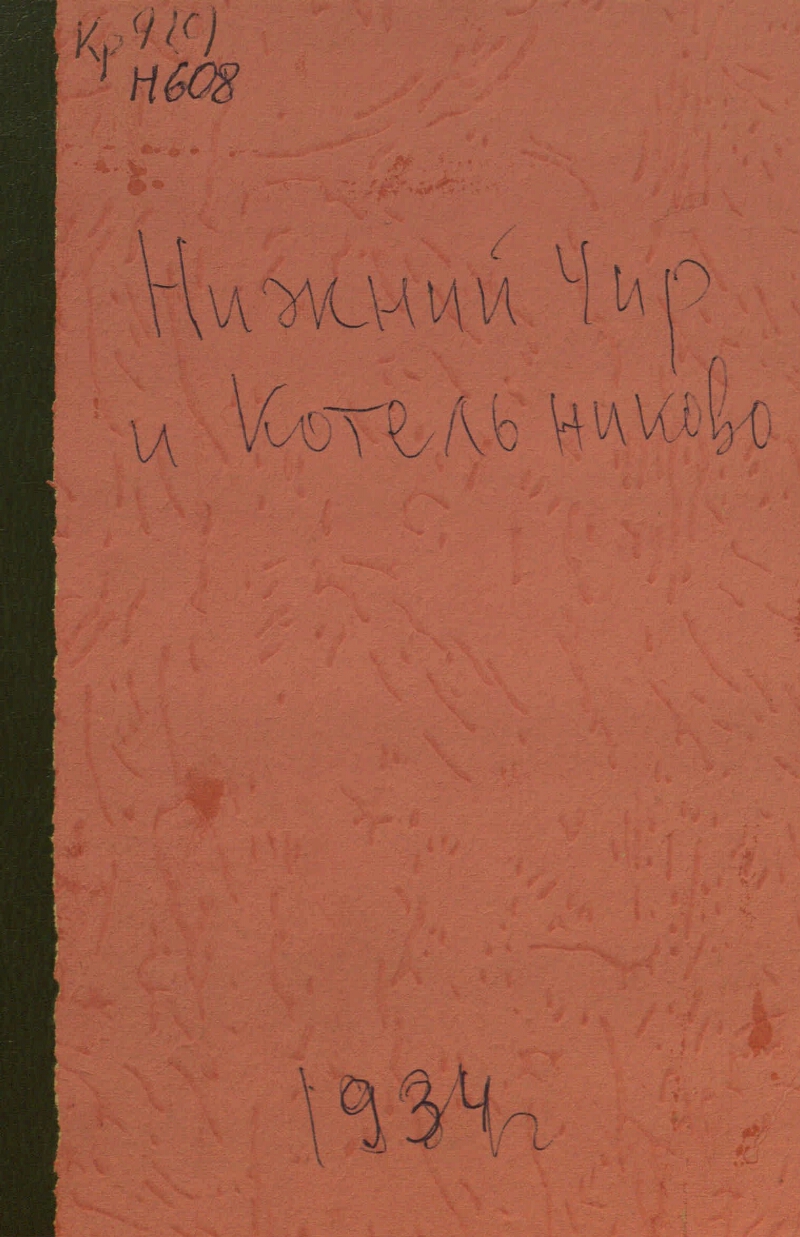 Кр 9(с)
Н608
Нижний Чир
и Котельниково
1934г